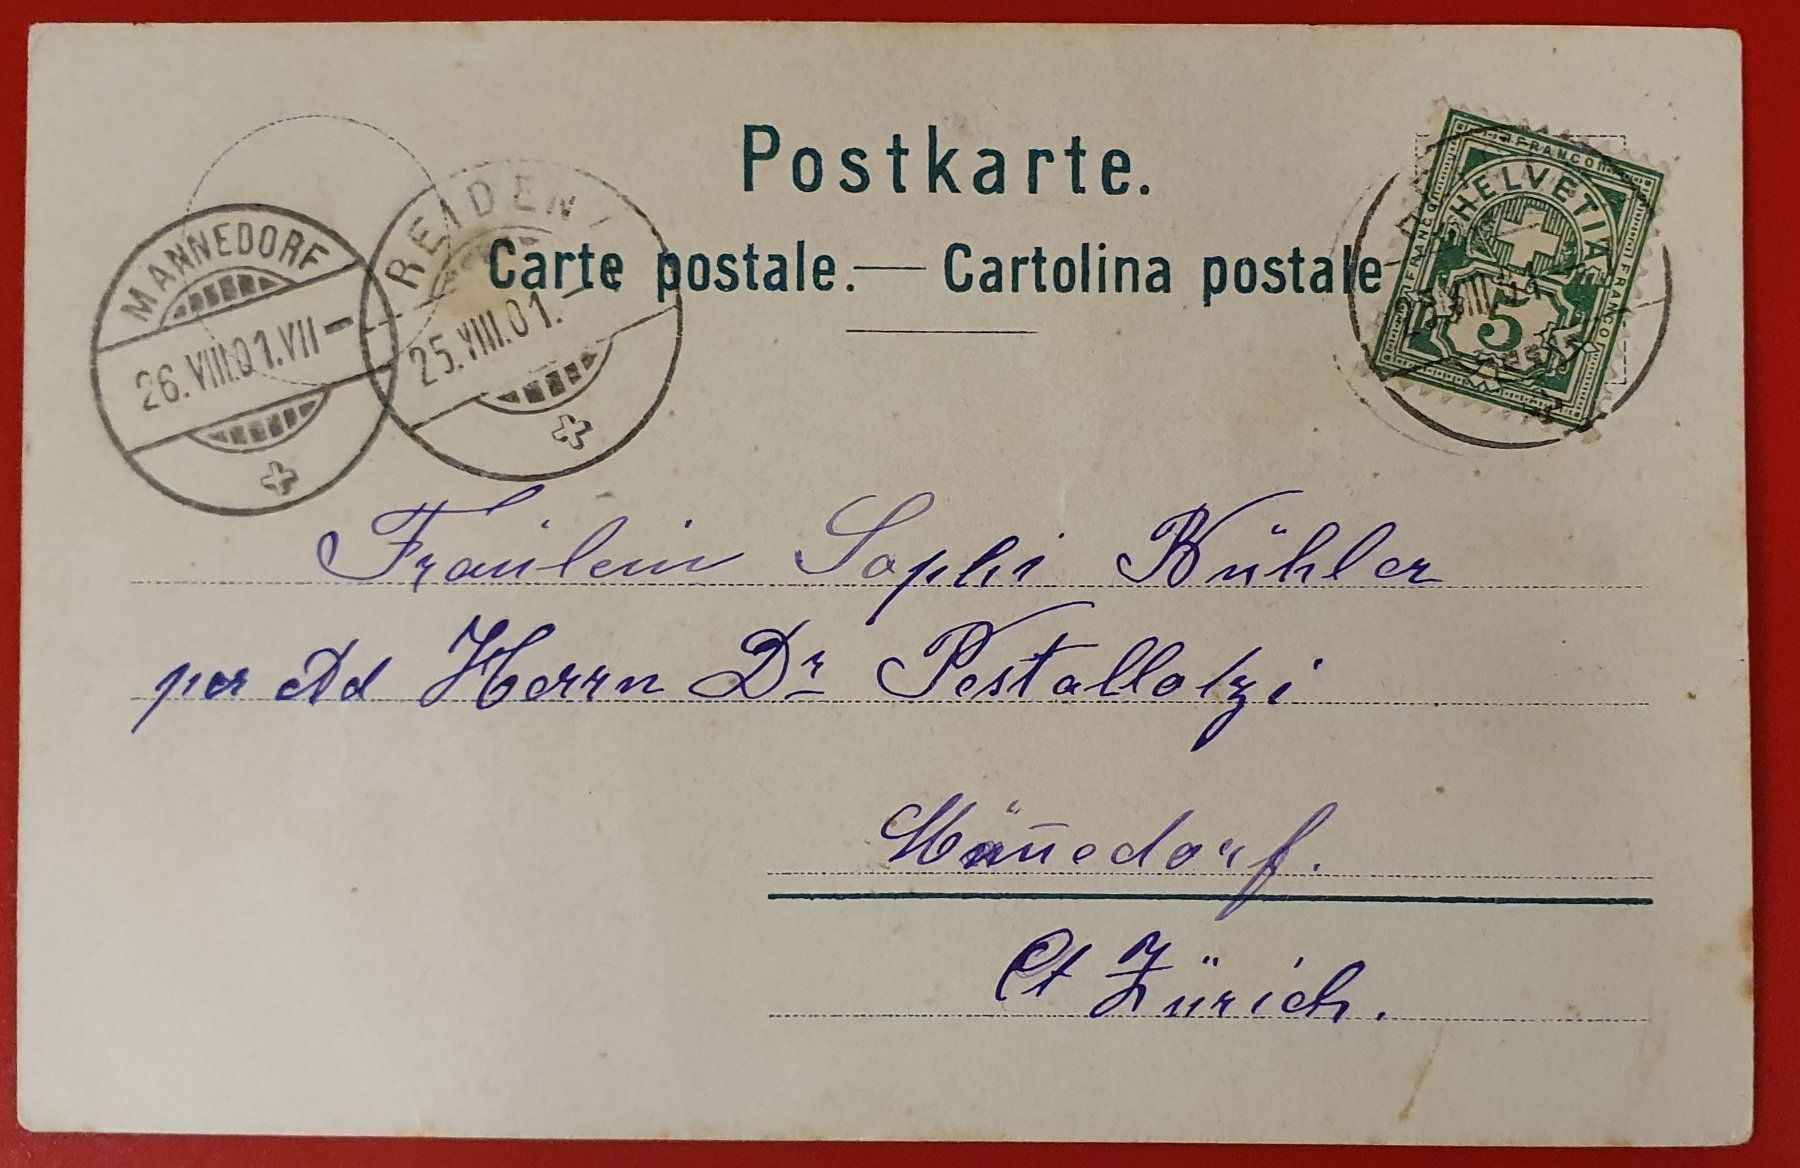 Postkarte.
Carte postale. — Cartolina postale
MANNEDORF
26. VIII.01.VII –
REIDEN
25. VIII.01. –
FRANCO
FRANCO
FRANCO
HELVETIA
5
Fräulein Sophi Bühler
per Ad Herrn Dr Pestallotzi
Männedorf.
Ct Zürich.